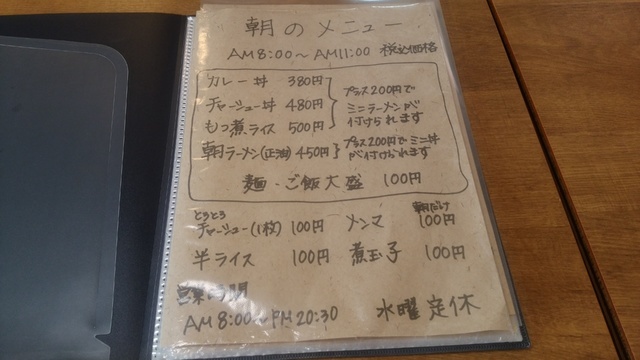 朝のメニュー
AM8:00〜AM11:00 税込価格
カレー丼 380円
チャーシュー丼 480円
もつ煮ライス 500円
プラス200円で
ミニラーメンが
付けられます
朝ラーメン(正油) 450円
プラス200円でミニ丼
が付けられます
麺・ご飯大盛 100円
とろとろ
チャーシュー(1枚) 100円
朝だけ
メンマ 100円
半ライス 100円
煮玉子 100円
営業時間
AM8:00〜PM20:30
水曜定休